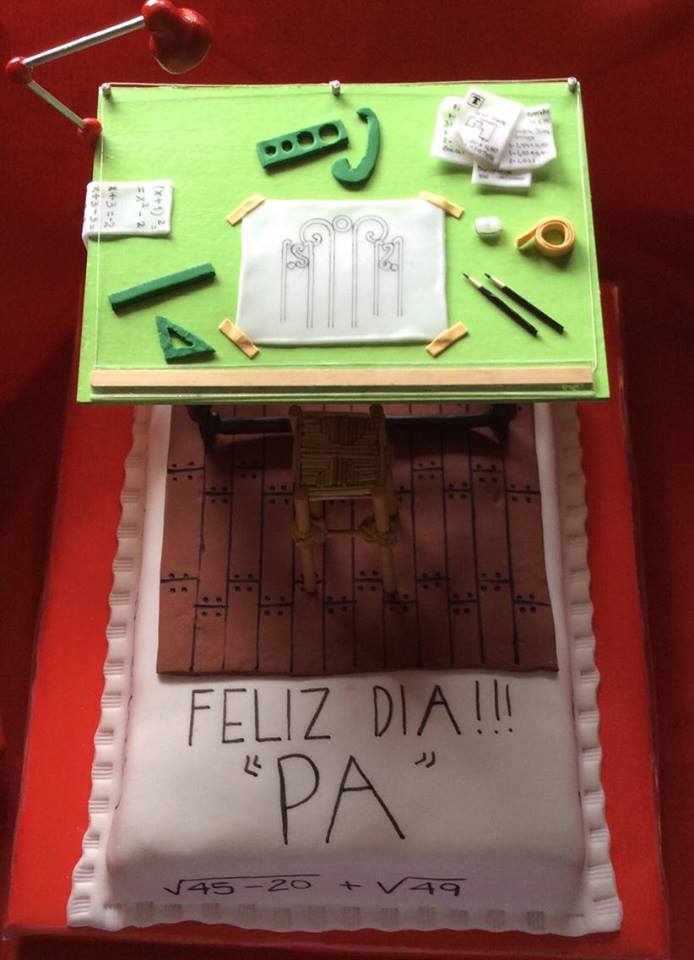 T
(x+1)²=
=x²-2
x+3=-2
x+3-3=
FELIZ DIA!!!
“PA”
√45-20 + √49